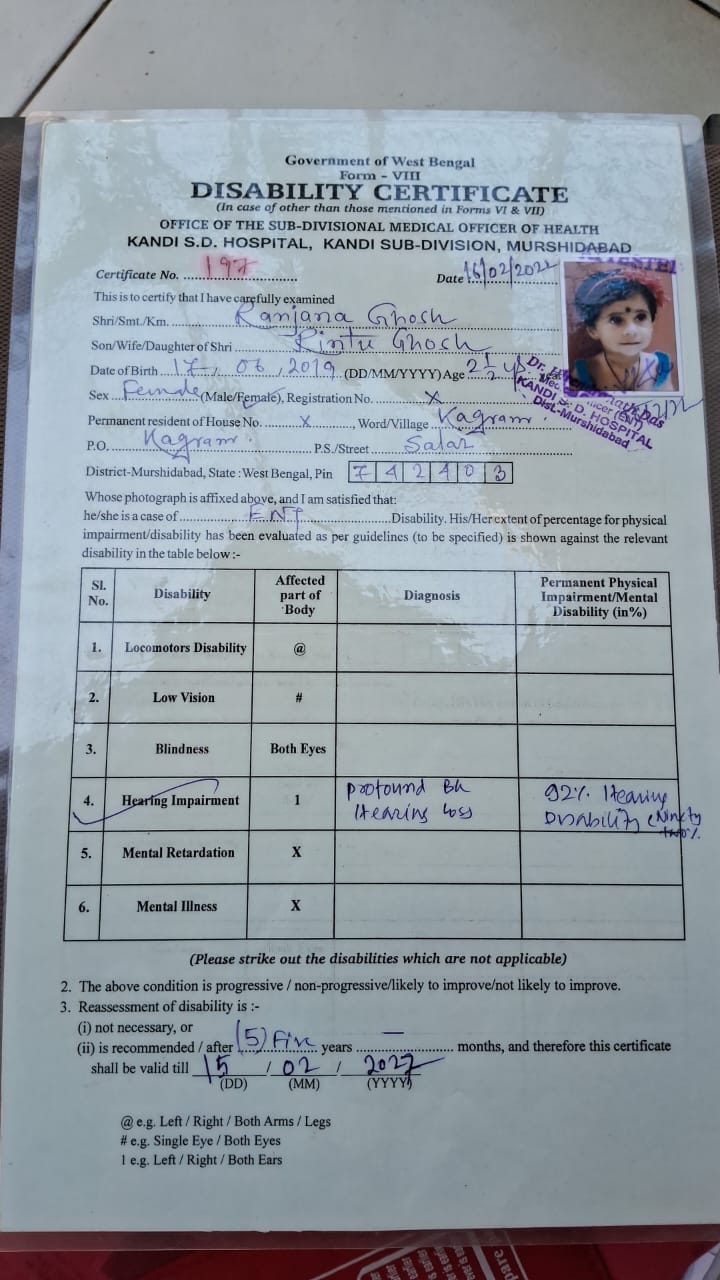 Government of West Bengal
Form - VIII
DISABILITY CERTIFICATE
(In case of other than those mentioned in Forms VI & VII)
OFFICE OF THE SUB-DIVISIONAL MEDICAL OFFICER OF HEALTH
KANDI S.D. HOSPITAL, KANDI SUB-DIVISION, MURSHIDABAD
Certificate No. 197 Date 16/02/2022
This is to certify that I have carefully examined
Shri/Smt./Km. Ranjana Ghosh
Son/Wife/Daughter of Shri Rintu Ghosh
Date of Birth 17, 06, 2019 (DD/MM/YYYY) Age 2 1/2
Sex Female (Male/Female), Registration No. X
Permanent resident of House No. X, Word/Village Kagram.
P.O. Kagram. P.S./Street Salar
District-Murshidabad, State : West Bengal, Pin 7 4 2 4 0 3
Dr.
KANDI S. D. HOSPITAL
Dist.-Murshidabad
Whose photograph is affixed above, and I am satisfied that:
he/she is a case of ENT Disability. His/Her extent of percentage for physical
impairment/disability has been evaluated as per guidelines (to be specified) is shown against the relevant
disability in the table below :-
Sl. No. Disability Affected part of Body Diagnosis Permanent Physical Impairment/Mental Disability (in%)
1. Locomotors Disability @
2. Low Vision #
3. Blindness Both Eyes
4. Hearing Impairment 1 Profound B/L Hearing Loss 92% Hearing Disability (Ninety two%
5. Mental Retardation X
6. Mental Illness X
(Please strike out the disabilities which are not applicable)
2. The above condition is progressive / non-progressive/likely to improve/not likely to improve.
3. Reassessment of disability is :-
(i) not necessary, or
(ii) is recommended / after (5) Five years — months, and therefore this certificate
shall be valid till 15 / 02 / 2027
(DD) (MM) (YYYY)
@ e.g. Left / Right / Both Arms / Legs
# e.g. Single Eye / Both Eyes
1 e.g. Left / Right / Both Ears